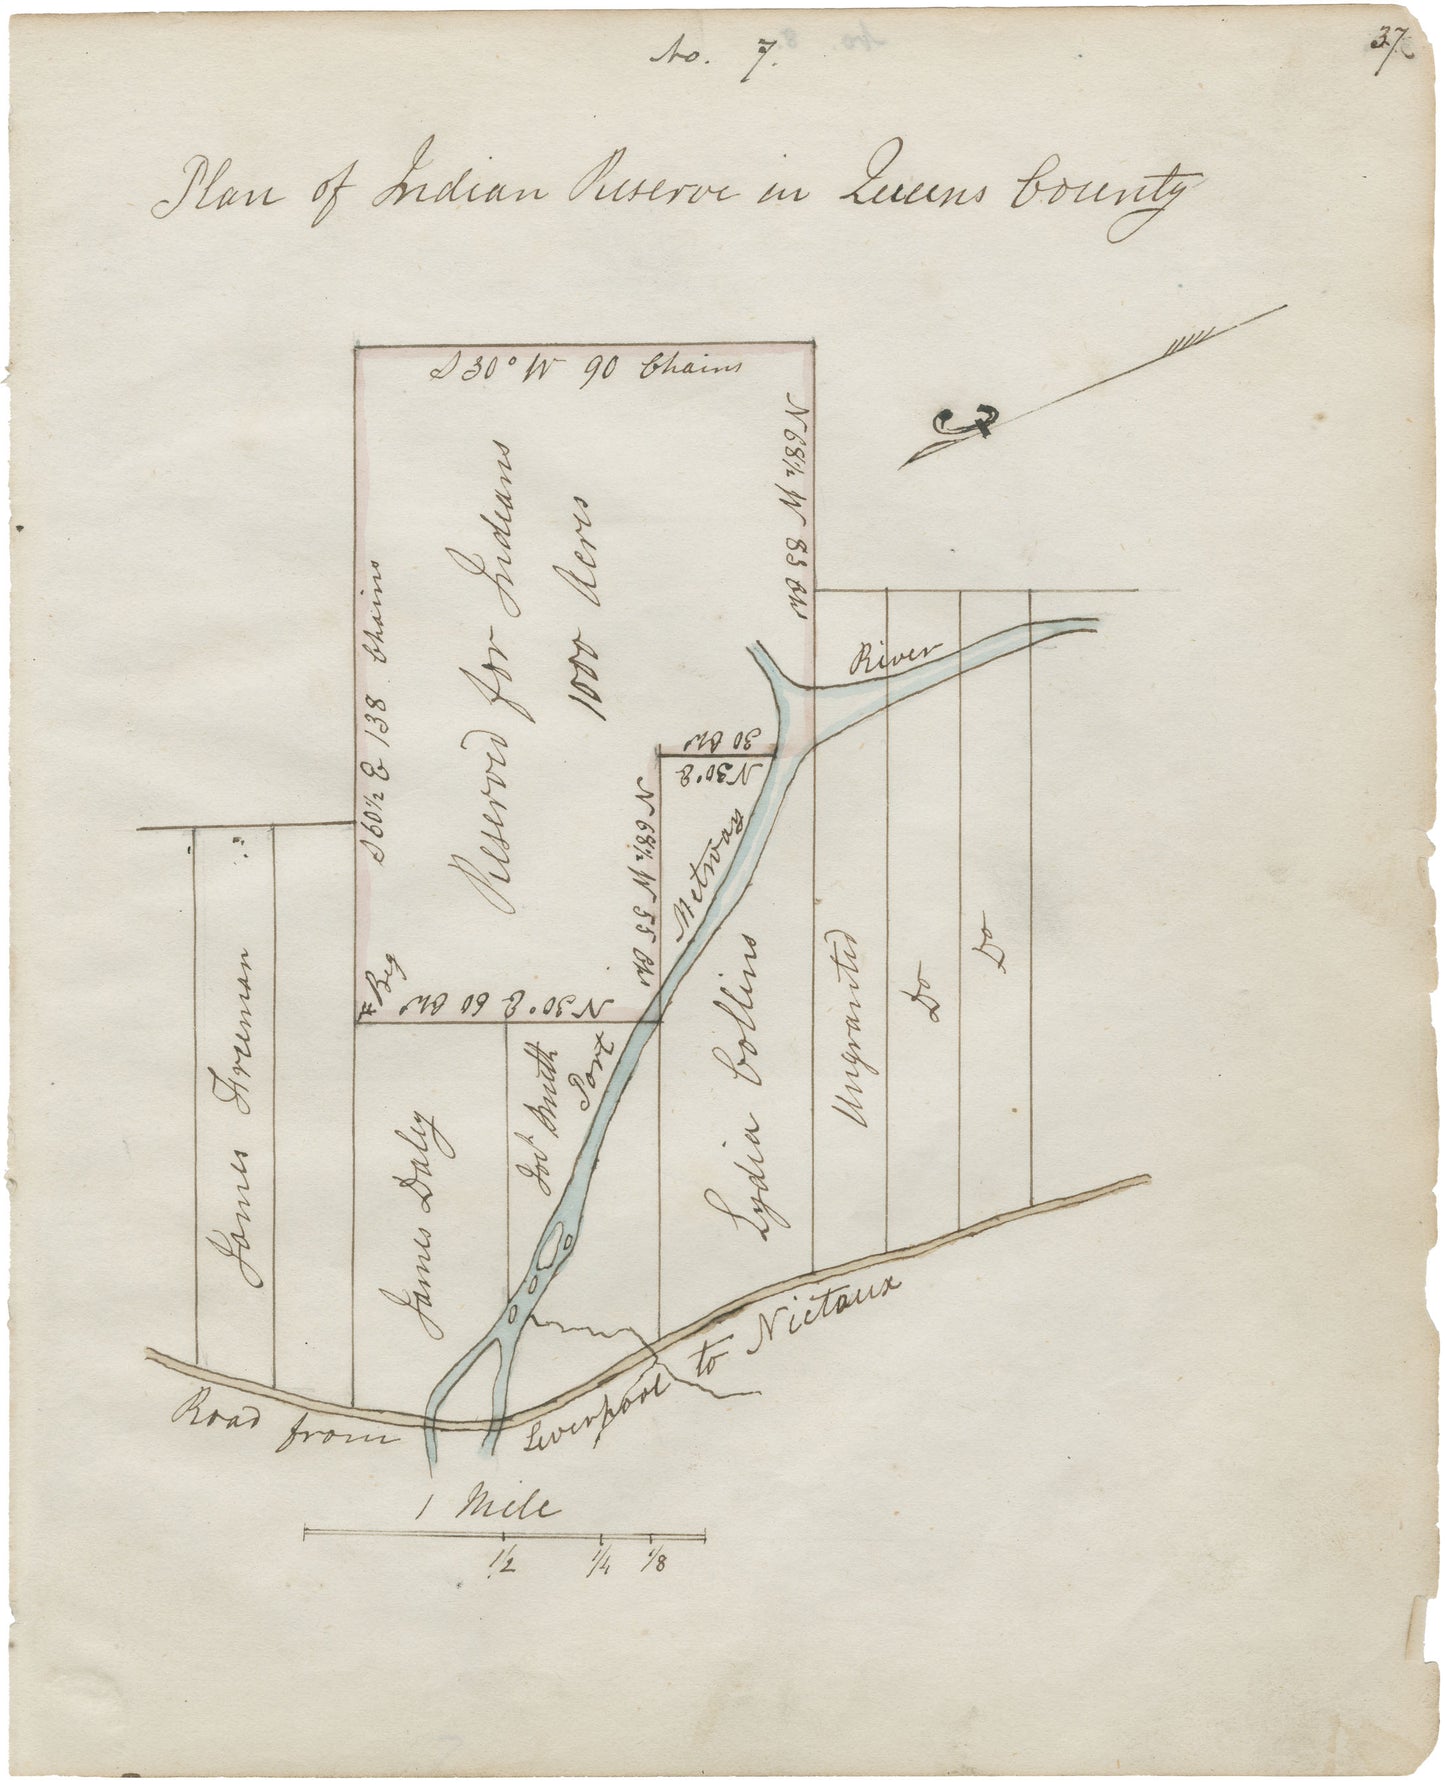 No. 7.
37
Plan of Indian Reserve in Queens County
S 30° W 90 Chains
N 68½ W 83 Chs
S 60½ E 138 Chains
Reserved for Indians
1000 Acres
River
30 Chs
N 30° E
N 68½ W 55 Chs
Beg
N 30° E 60 Chs
James Freeman
James Daley
Port
Lydia Collins
Ungranted
Do
Do
Road from Liverpool to Nictaux
1 Mile
1/2 1/4 1/8